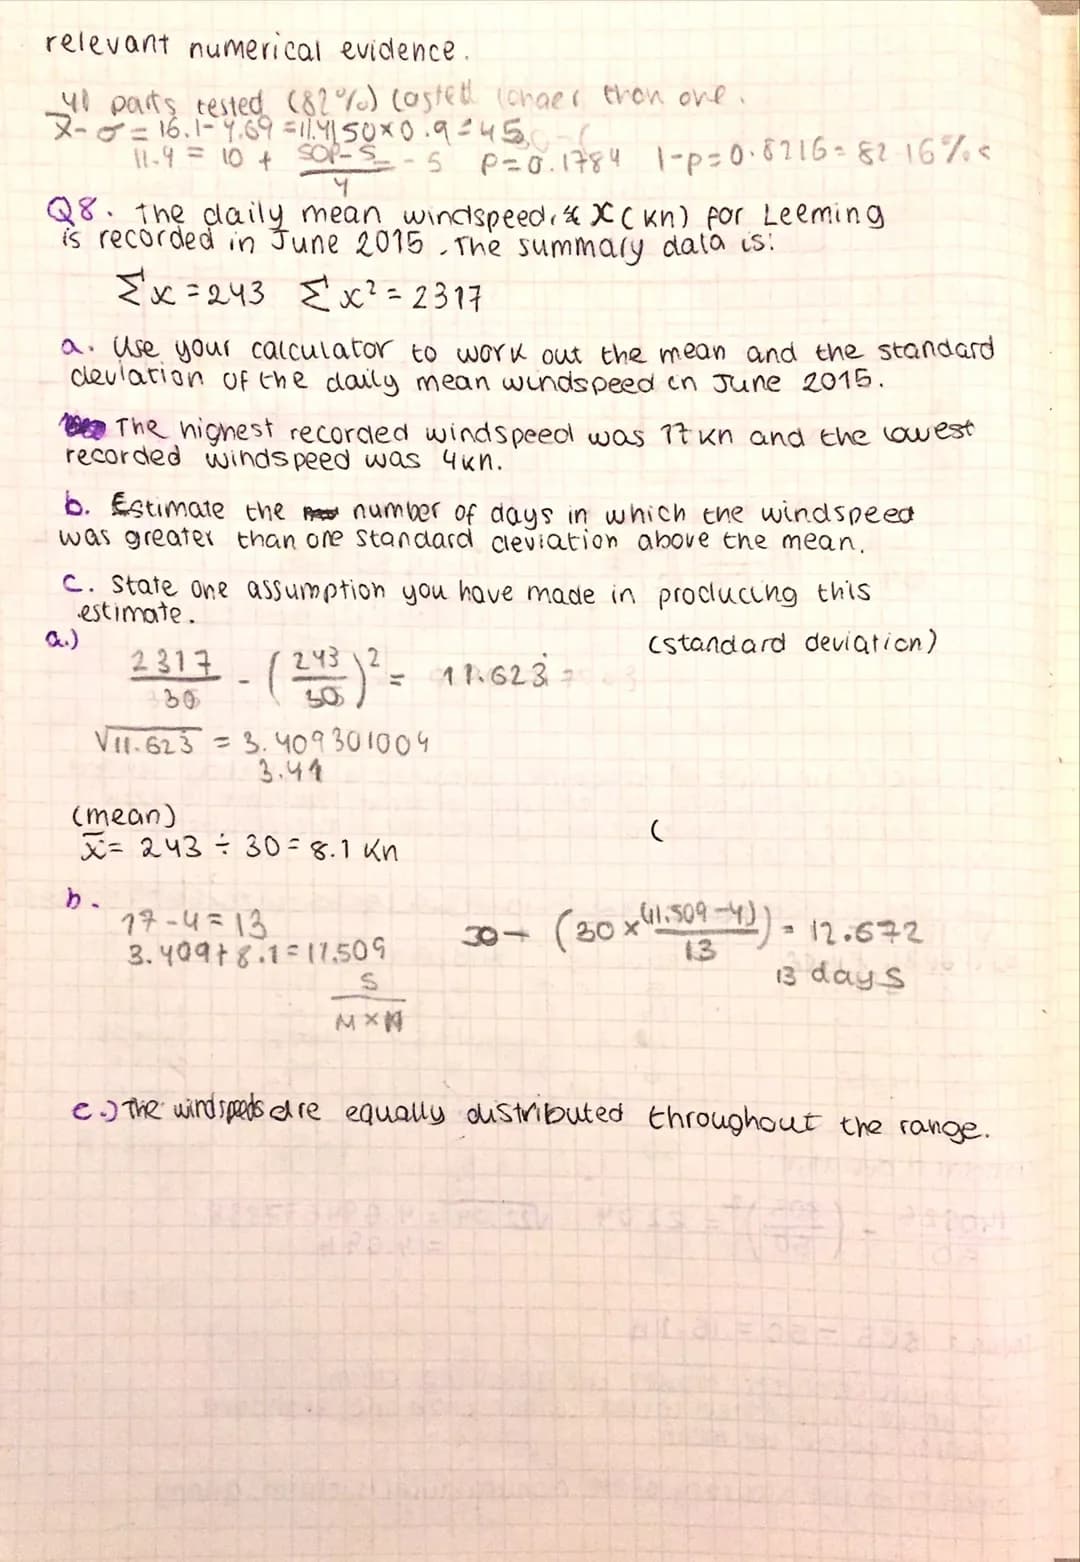 relevant numerical evidence.
41 parts tested (82%) lasted longer than one.
x̄-σ = 16.1-4.69 = 11.41 50×0.9=45
11.4 = 10 + (50P-5)/4 - 5 P=0.1784 1-p=0.8216=82.16% <
Q8. The daily mean windspeed, X (kn) for Leeming
is recorded in June 2015. The summary data is:
Σx=243 Σx²=2317
a. Use your calculator to work out the mean and the standard
deviation of the daily mean windspeed in June 2015.
The highest recorded windspeed was 17kn and the lowest
recorded windspeed was 4kn.
b. Estimate the number of days in which the windspeed
was greater than one standard deviation above the mean.
c. State one assumption you have made in producing this
estimate.
a.) (standard deviation)
2317/30 - (243/30)² = 11.623
√11.623 = 3.409301004
3.41
(mean)
x̄ = 243 ÷ 30 = 8.1 kn (
b.
17-4=13
3.409+8.1=11.509 30- (30×(11.509-4)/13) = 12.672
13 days
S
M×N
c.) The windspeeds are equally distributed throughout the range.